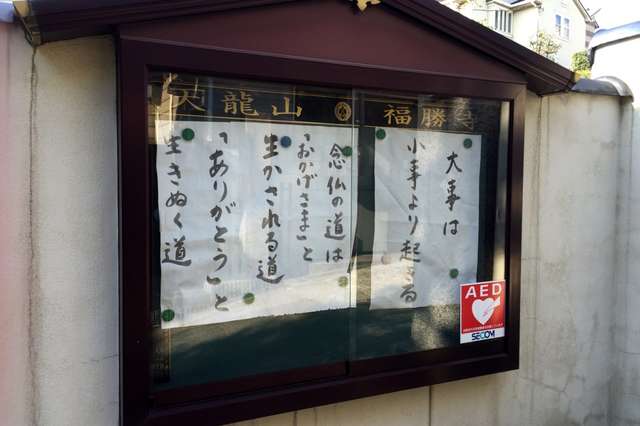 天龍山 福勝寺
大事は
小事より起きる
念仏の道は
「おかげさま」と
生かされる道
「ありがとう」と
生きぬく道
AED
SECOM